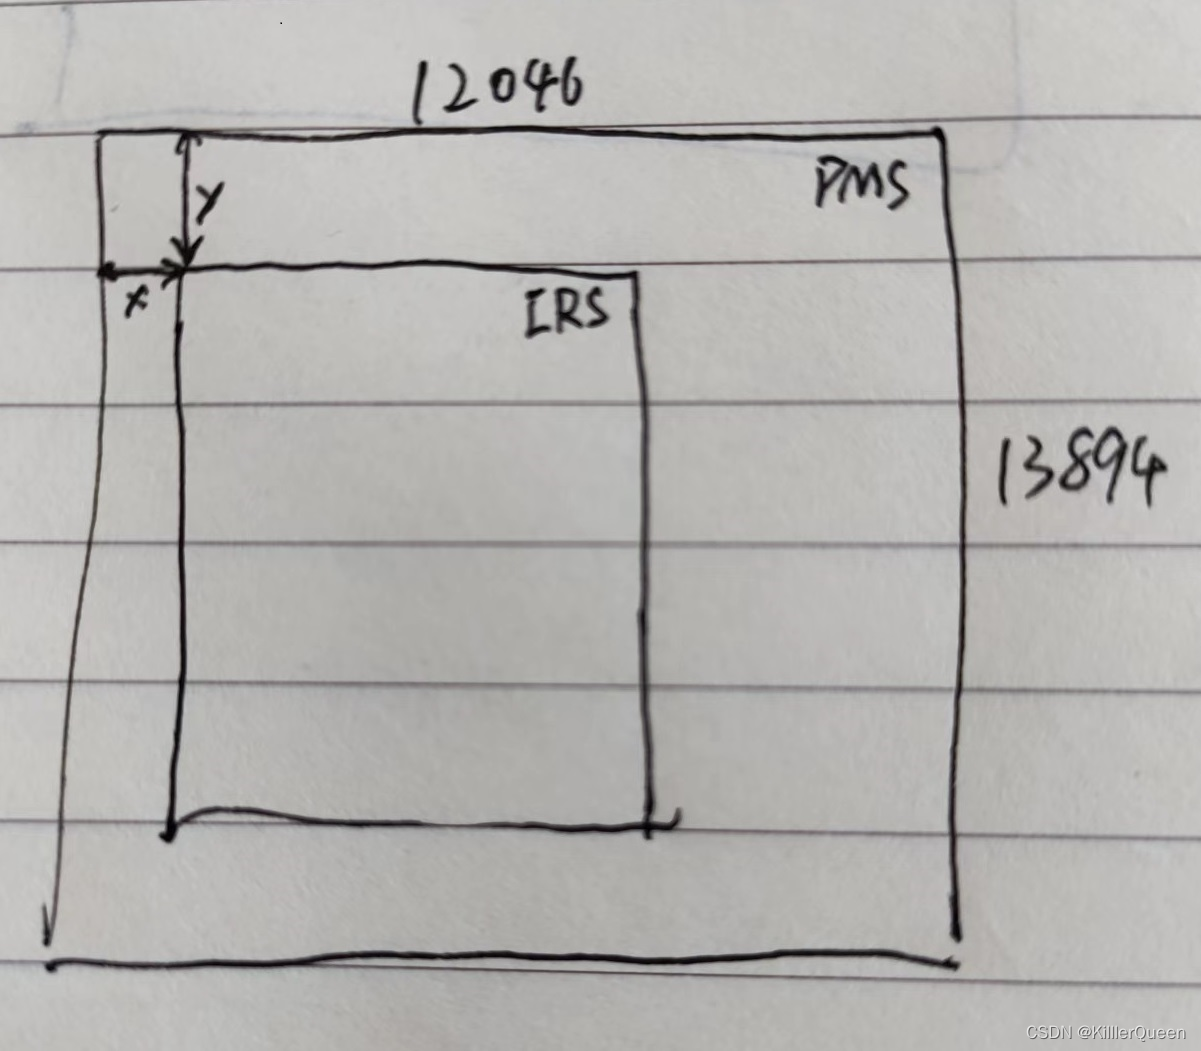 12046
PMS
y
x
IRS
13894
CSDN @KilllerQueen